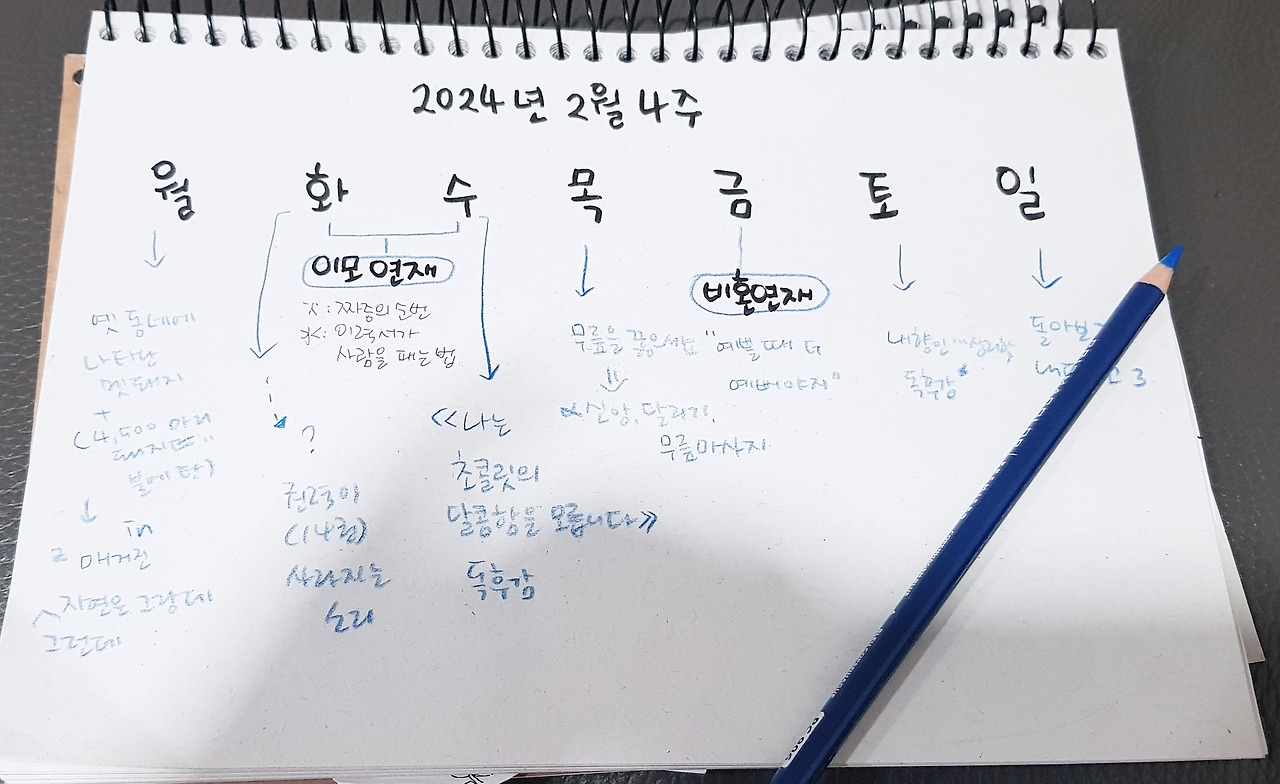 2024년 2월 4주
월 화 수 목 금 토 일
이모 연재
화 : 짜증의 5번
수 : 이력서가
사람을 패는 법
비혼연재
옛 동네에
나타난
멧돼지
+
(4,500 마리
돼지
불에 탄)
in
매거진
자연은 그랑데
그런데
?
(14권)
사라지는
소리
<<나는
초콜릿의
달콤함을 모릅니다>>
독후감
무릎을 꿇으세요
신앙, 달리기,
무릎마사지
"예쁠 때 더
예뻐야지"
내향인
독후감
돌아보
고3